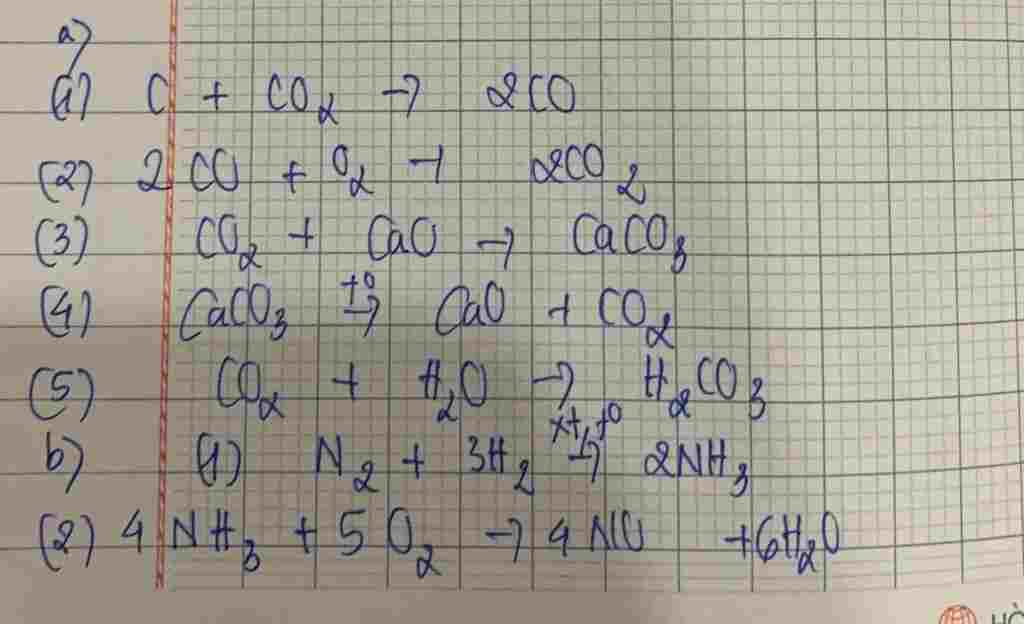 a)
(1) C + CO₂ → 2CO
(2) 2CO + O₂ → 2CO₂
(3) CO₂ + CaO → CaCO₃
(4) CaCO₃ t° → CaO + CO₂
(5) CO₂ + H₂O → H₂CO₃
b) (1) N₂ + 3H₂ xt, t° → 2NH₃
(2) 4NH₃ + 5O₂ → 4NO + 6H₂O